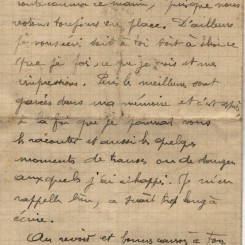 ce matin, puisque nous
volons toujours en place. D'ailleurs
je vous écris soit à toi soit à
que je fais ce que je vois et mes
impressions. Puis le meilleur sont
gravées dans ma mémoire et c'est
à la fin que je pourrai vous
les raconter et aussi les quelques
moments de transes ou de danger
auxquels j'ai échappé. Je m'en
rappelle bien, ce serait trop long à
écrire.
Au revoir et bonnes caresses à ton